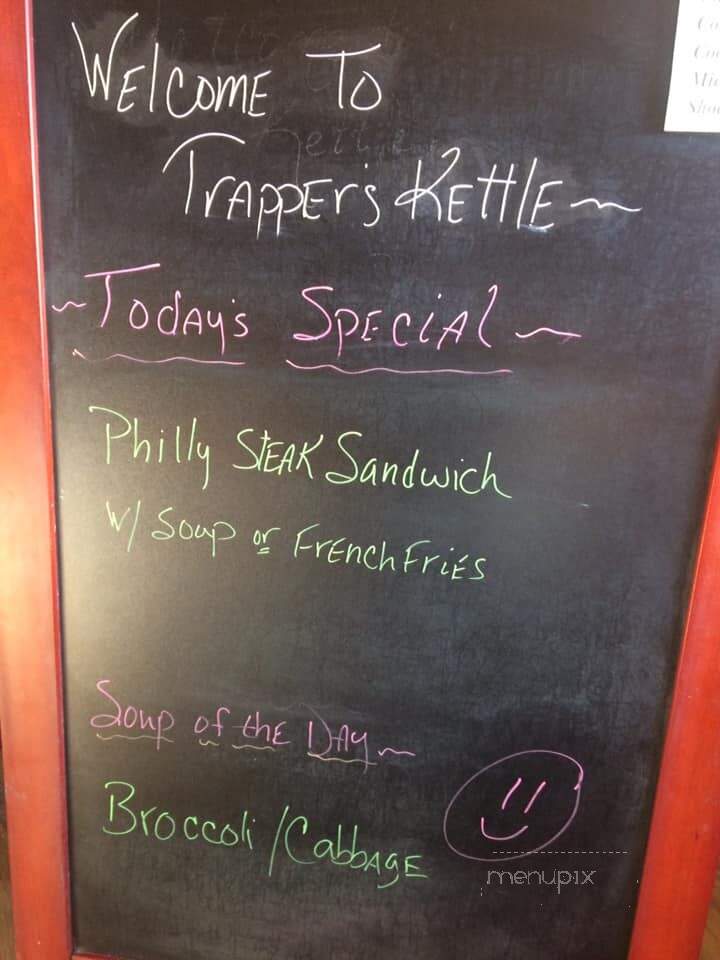 WElCOME To
TRAPPER's KEttlE~
~Today's SPECiAl~
Philly STEAK Sandwich
W/ Soup or FrENch FriES
Soup of the DAy~
Broccoli/CabbAgE
menupix